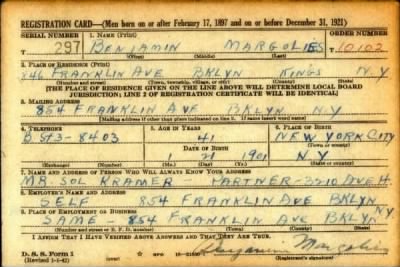 REGISTRATION CARD—(Men born on or after February 17, 1897 and on or before December 31, 1921)
SERIAL NUMBER 1. NAME (Print) ORDER NUMBER
297 BENJAMIN MARGOLIES 10,102
(First) (Middle) (Last)
2. PLACE OF RESIDENCE (Print)
846 FRANKLIN AVE BKLYN KINGS N.Y
(Number and street) (Town, township, village, or city) (County) (State)
[THE PLACE OF RESIDENCE GIVEN ON THE LINE ABOVE WILL DETERMINE LOCAL BOARD
JURISDICTION; LINE 2 OF REGISTRATION CERTIFICATE WILL BE IDENTICAL]
3. MAILING ADDRESS
854 FRANKLIN AVE BKLYN N.Y
[Mailing address if other than place indicated on line 2. If same insert word same]
4. TELEPHONE 5. AGE IN YEARS 6. PLACE OF BIRTH
8403 41 NEW YORK CITY
DATE OF BIRTH (Town or county)
1 21 1901 N.Y
(Exchange) (Number) (Mo.) (Day) (Yr.) (State or country)
7. NAME AND ADDRESS OF PERSON WHO WILL ALWAYS KNOW YOUR ADDRESS
MR SOL KRAMER - PARTNER - 3210 AVE H.
8. EMPLOYER'S NAME AND ADDRESS
SELF 854 FRANKLIN AVE BKLYN
9. PLACE OF EMPLOYMENT OR BUSINESS N.Y.
SAME - 854 FRANKLIN AVE BKLYN
(Number and street or R. F. D. number) (Town) (County) (State)
I AFFIRM THAT I HAVE VERIFIED ABOVE ANSWERS AND THAT THEY ARE TRUE.
D. S. S. Form 1 Benjamin Margolies
(Registrant's signature)